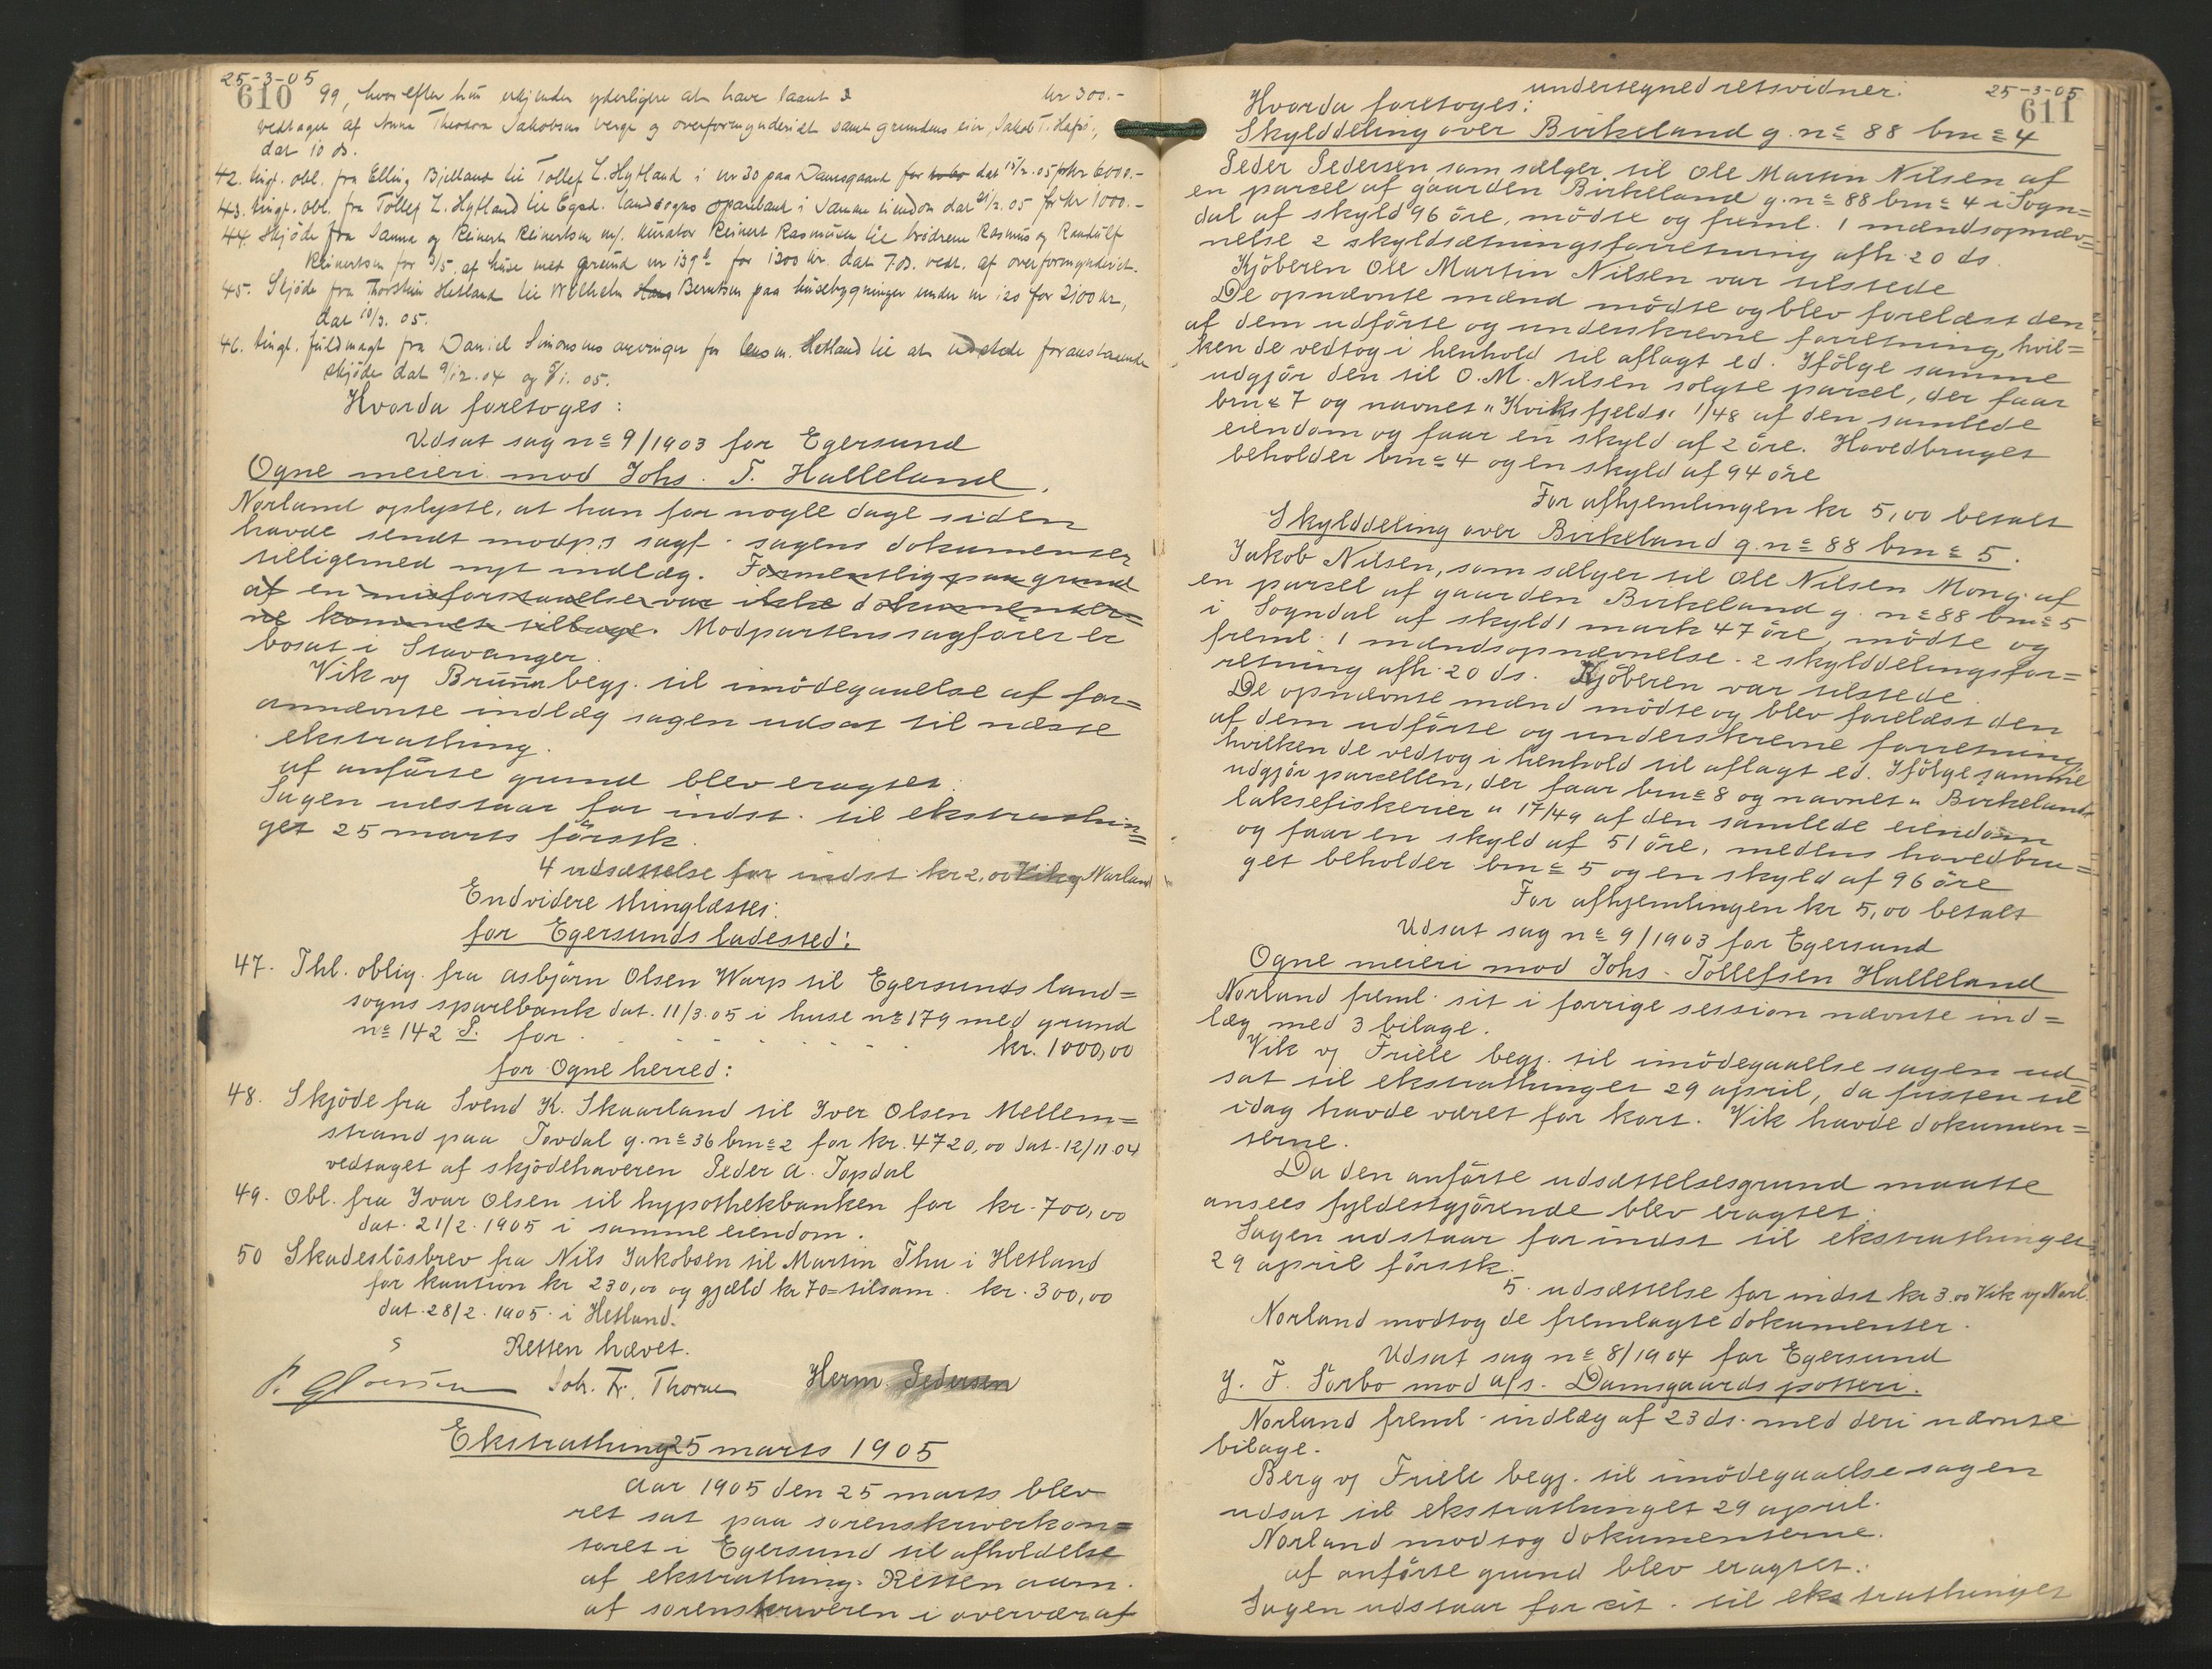 25-3-05
610 99, hvorefter hun erkjender yderligere at have laant kr 300.-
vedtaget af Anna Theodora Jakobsens verge og overformynderiet samt grundens eier, Jakob T. Hafsö,
dat 10 ds.
42. tingl. obl. fra Elling Bjelland til Tollef L. Hytland i nr 30 paa Damsgaard for dat 15/2. 05 for kr 6000.-
43. tingl. obl. fra Tollef L. Hytland til Egsd. landsogns sparebank i samme eiendom dat 21/2. 05 for kr 1000.-
44. Skjöde fra Janna og Reinert Reinertsen m/. kurator Reinert Rasmussen til brödrene Rasmus og Randulf
Reinertsen for 3/5 af huse med grund nr 139b for 1200 kr. dat 7 ds. vedt. af overformynderiet.
45. Skjöde fra Thorstein Hetland til Wilhelm Hans Berntsen paa husebygninger under nr 120 for 2100 kr,
dat 10/3. 05.
46. tingl. fuldmagt fra Daniel Simonsens arvinger for lensm. Hetland til at udstede foranstaaende
skjöde dat 9/12. 04 og 8/1. 05.
Hvorda foretoges:
Udsat sag no 9/1903 for Egersund
Ogne meieri mod Johs. T. Halleland.
Norland oplyste, at han for nogle dage siden
havde sendt modp.s sagf. sagens dokumenter
tilligemed nyt indlæg. Formentlig paa grund
af en misforstaaelse var ikke dokumenter=
ne kommet tilbage. Modpartens sagförer er
bosat i Stavanger.
Vik vj Bruun begj. til imödegaaelse af for=
annævnte indlæg sagen udsat til næste
ekstrathing.
af anförte grund blev eragtet:
Sagen udstaar for indst. til ekstrathin=
get 25 marts förstk.
4 udsættelse for indst. kr 2,00 Vik og Norland
Endvidere thinglæstes:
for Egersunds ladested:
47. Thl. oblig. fra Asbjörn Olsen Warp til Egersunds land=
sogns sparebank dat. 11/3.05 i huse no 179 med grund
no 142 P. for . - - - - - - kr. 1000,00
for Ogne herred:
48. Skjöde fra Svend K. Skaarland til Iver Olsen Mellem=
strand paa Tovdal g. no 36 bno 2 for kr. 4720,00 dat. 12/11 04
vedtaget af skjödehaveren Peder A. Topdal
49. Obl. fra Ivar Olsen til hypothekbanken for kr. 700,00
dat. 21/2. 1905 i samme eiendom.
50 Skadeslösbrev fra Nils Jakobsen til Martin Thu i Hetland
for kaution kr 230,00 og gjæld kr 70= tilsam. kr. 300,00
dat. 28/2. 1905. i Hetland.
Retten hævet.
Joh. Fr. Thorne Herm. Pedersen
Ekstrathing 25 marts 1905
Aar 1905 den 25 marts blev
ret sat paa sorenskriverkon=
toret i Egersund til afholdelse
af ekstrathing. Retten adm.
af sorenskriveren i overvær af
undertegned retsvidner:
25-3-05
611
Hvorda foretoges:
Skylddeling over Birkeland g. no 88 bno 4
Peder Pedersen, som sælger til Ole Martin Nilsen af
en parcel af gaarden Birkeland g. no 88 bno 4 i Sogn=
dal af skyld 96 öre, mödte og freml. 1 mændsopnæv=
nelse 2 skyldsætningsforretning afh. 20 ds.
Kjöberen Ole Martin Nilsen var tilstede
De opnævnte mænd mödte og blev forelæst den
af dem udförte og underskrevne forretning, hvil=
ken de vedtog i henhold til aflagt ed. Ifölge samme
udgjör den til O. M. Nilsen solgte parcel, der faar
bno 7 og navnet "Kviksfjelds" 1/48 af den samlede
eiendom og faar en skyld af 2 öre. Hovedbruget
beholder bno 4 og en skyld af 94 öre
For afhjemlingen kr 5,00 betalt
Skylddeling over Birkeland g. no 88 bno 5.
Jakob Nilsen, som sælger til Ole Nilsen Mong af
en parcel af gaarden Birkeland g. no 88 bno 5
i Sogndal af skyld 1 mark 47 öre, mödte og
freml. 1 mændsopnævnelse. 2 skylddelingsfor=
retning afh. 20 ds. Kjöberen var tilstede.
De opnævnte mænd mödte og blev forelæst den
af dem udförte og underskrevne forretning
hvilken de vedtog i henhold til aflagt ed. Ifölge samme
udgjör parcellen, der faar bno 8 og navnet "Birkelands
laksefiskerier" 17/49 af den samlede eiendom
og faar en skyld af 51 öre, medens hovedbru=
get beholder bno 5 og en skyld af 96 öre
For afhjemlingen kr 5,00 betalt
Udsat sag no 9/1903 for Egersund
Ogne meieri mod Johs. Tollefsen Halleland
Norland freml. sit i forrige session nævnte ind=
læg med 3 bilage.
Vik vj Friele begj. til imödegaaelse sagen ud=
sat til ekstrathinget 29 april, da fristen til
idag havde været for kort. Vik havde dokumen=
terne.
Da den anförte udsættelsesgrund maatte
ansees fyldestgjörende blev eragtet:
Sagen udstaar for indst til ekstrathinget
29 april förstk.
5. udsættelse for indst kr 3.00 Vik og Norl.
Norland modtog de fremlagte dokumenter.
Udsat sag no 8/1904 for Egersund
G. F. Sörbö mod a/s. Damsgaards potteri.
Norland freml. indlæg af 23 ds. med deri nævnte
bilage.
Berg vj Friele begj. til imödegaaelse sagen
udsat til ekstrathinget 29 april.
Norland modtog dokumenterne.
af anförte grund blev eragtet:
Sagen udstaar for cit. til ekstrathinget